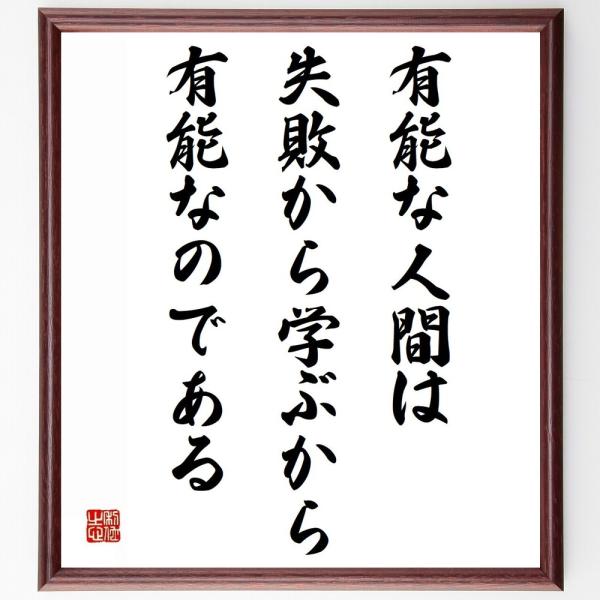 有能な人間は
失敗から学ぶから
有能なのである